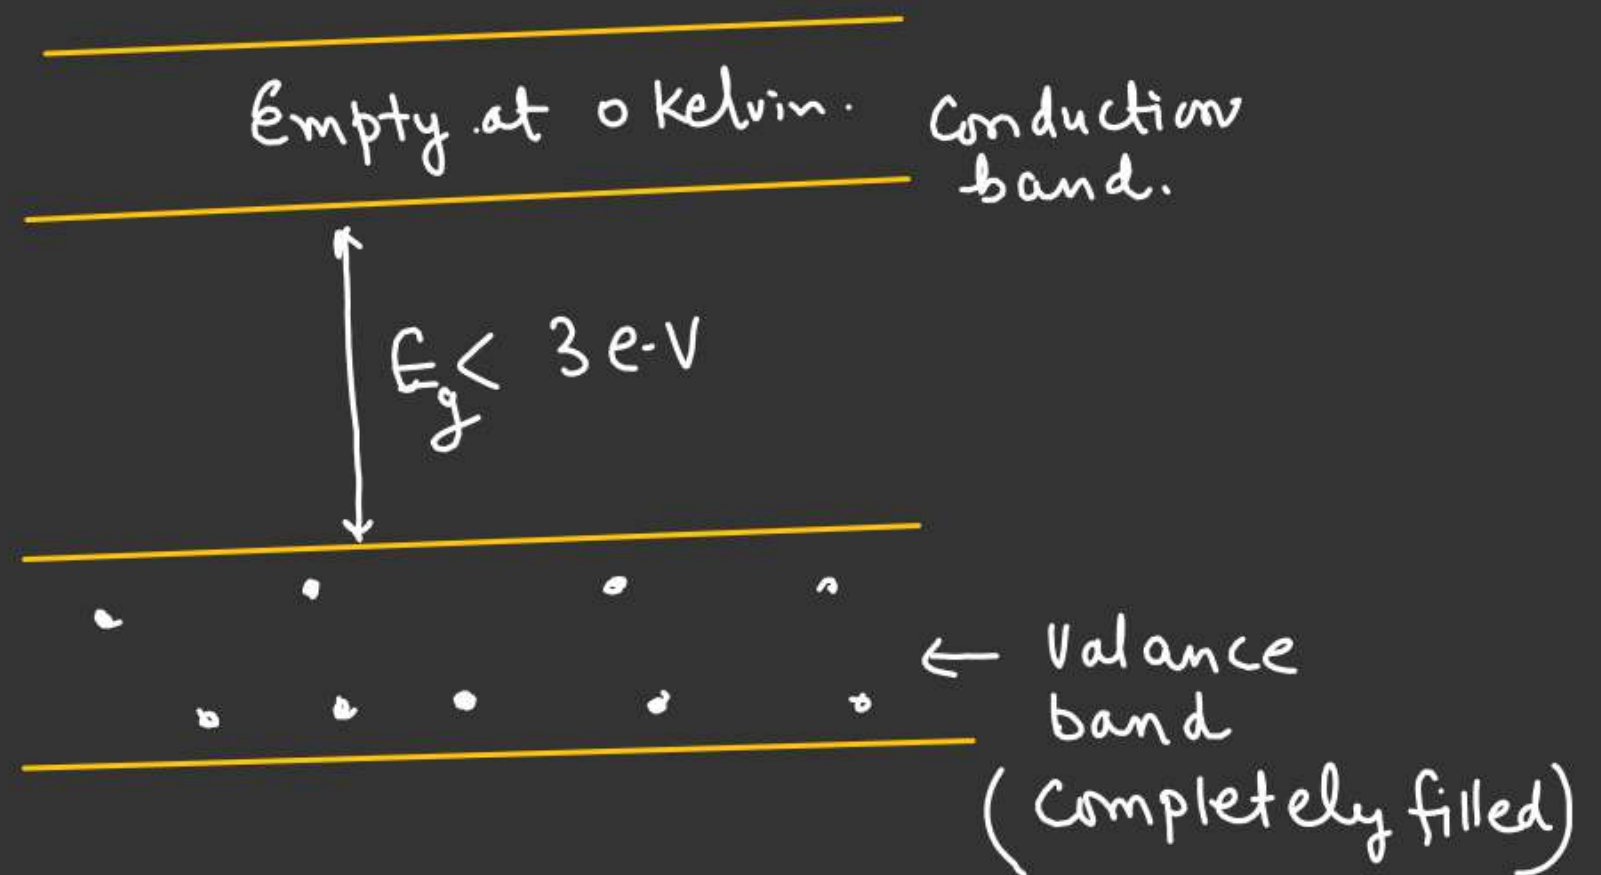 Empty at 0 Kelvin.
Conduction
band.
Eg < 3 e-V
← Valance
band
(Completely filled)